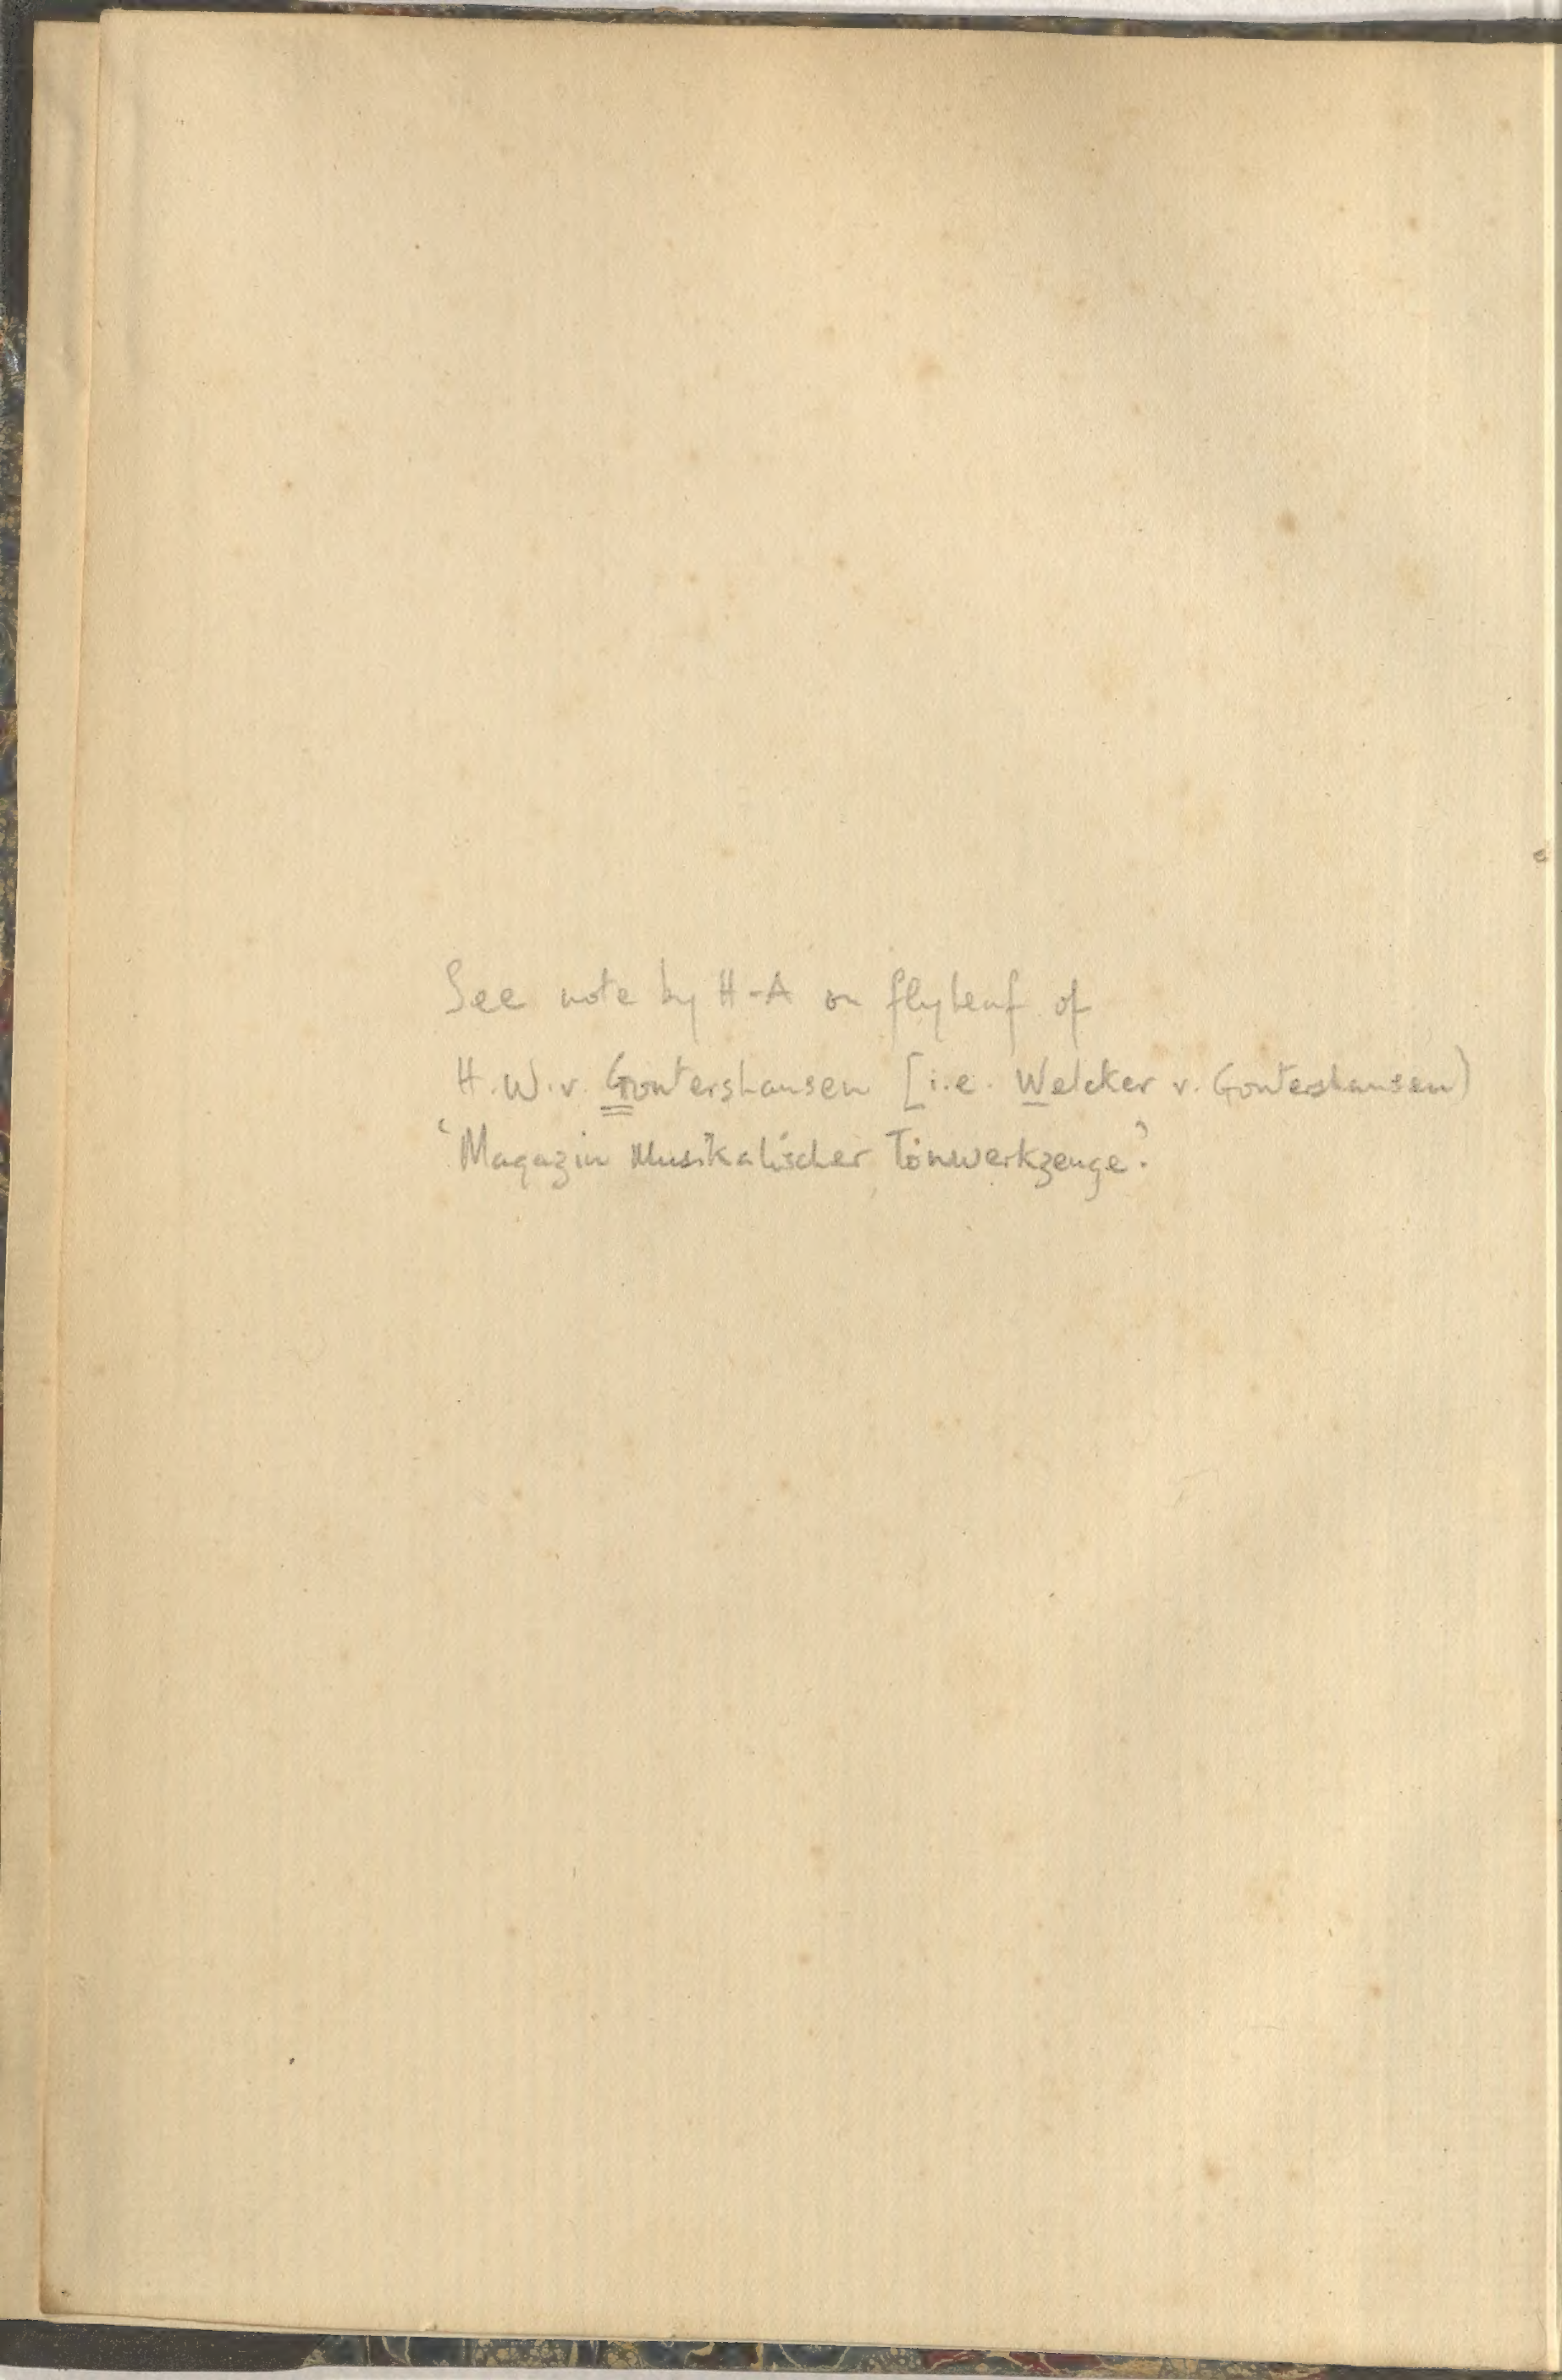 See note by H-A on flyleaf of
H.W.v. Gontershausen [i.e. Welcker v. Gontershausen)
'Magazin Musikalischer Tonwerkzeuge'.